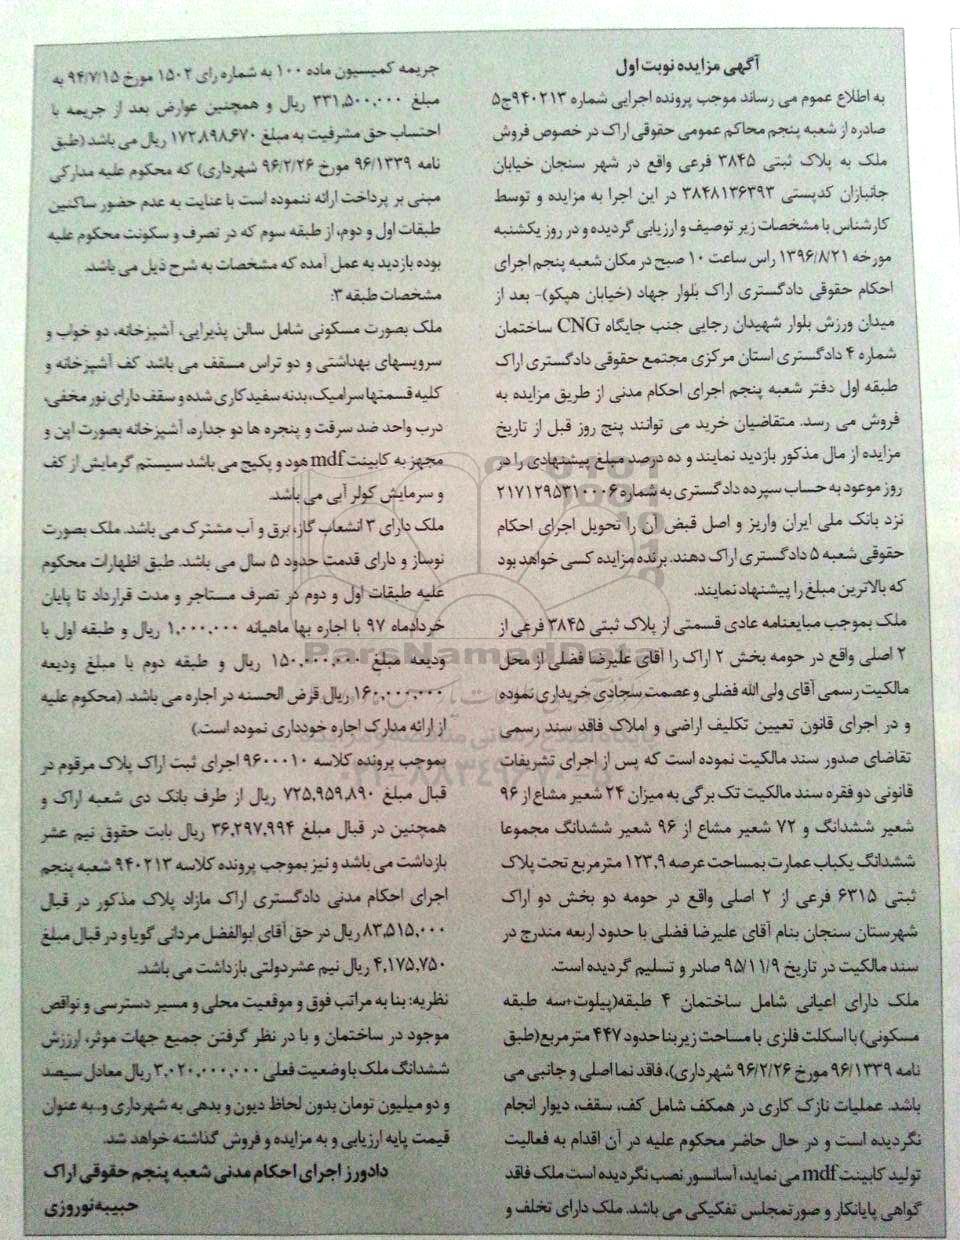 آگهی مزایده نوبت اول
به اطلاع عموم می رساند موجب پرونده اجرایی شماره ۹۴۰۲۱۳ج۵
صادره از شعبه پنجم محاکم عمومی حقوقی اراک در خصوص فروش
ملک به پلاک ثبتی ۳۸۴۵ فرعی واقع در شهر سنجان خیابان
جانبازان کدپستی ۳۸۴۸۱۳۶۳۹۳ در این اجرا به مزایده و توسط
کارشناس با مشخصات زیر توصیف و ارزیابی گردیده و در روز یکشنبه
مورخه ۱۳۹۶/۸/۲۱ راس ساعت ۱۰ صبح در مکان شعبه پنجم اجرای
احکام حقوقی دادگستری اراک بلوار جهاد (خیابان هپکو)- بعد از
میدان ورزش بلوار شهیدان رجایی جنب جایگاه CNG ساختمان
شماره ۴ دادگستری استان مرکزی مجتمع حقوقی دادگستری اراک
طبقه اول دفتر شعبه پنجم اجرای احکام مدنی از طریق مزایده به
فروش می رسد. متقاضیان خرید می توانند پنج روز قبل از تاریخ
مزایده از مال مذکور بازدید نمایند و ده درصد مبلغ پیشنهادی را در
روز موعود به حساب سپرده دادگستری به شماره ۲۱۷۱۲۹۵۳۱۰۰۰۶
نزد بانک ملی ایران واریز و اصل قبض آن را تحویل اجرای احکام
حقوقی شعبه ۵ دادگستری اراک دهند. برنده مزایده کسی خواهد بود
که بالاترین مبلغ را پیشنهاد نمایند.
ملک بموجب مبایعنامه عادی قسمتی از پلاک ثبتی ۳۸۴۵ فرعی از
۲ اصلی واقع در حومه بخش ۲ اراک را آقای علیرضا فضلی از محل
مالکیت رسمی آقای ولی الله فضلی و عصمت سجادی خریداری نموده
و در اجرای قانون تعیین تکلیف اراضی و املاک فاقد سند رسمی
تقاضای صدور سند مالکیت نموده است که پس از اجرای تشریفات
قانونی دو فقره سند مالکیت تک برگی به میزان ۲۴ شعیر مشاع از ۹۶
شعیر ششدانگ و ۷۲ شعیر مشاع از ۹۶ شعیر ششدانگ مجموعا
ششدانگ یکباب عمارت بمساحت عرصه ۱۲۳.۹ مترمربع تحت پلاک
ثبتی ۶۳۱۵ فرعی از ۲ اصلی واقع در حومه دو بخش دو اراک
شهرستان سنجان بنام آقای علیرضا فضلی با حدود اربعه مندرج در
سند مالکیت در تاریخ ۹۵/۱۱/۹ صادر و تسلیم گردیده است.
ملک دارای اعیانی شامل ساختمان ۴ طبقه(پیلوت+سه طبقه
مسکونی) با اسکلت فلزی با مساحت زیربنا حدود ۴۴۷ مترمربع(طبق
نامه ۹۶/۱۳۳۹ مورخ ۹۶/۲/۲۶ شهرداری)، فاقد نما اصلی و جانبی می
باشد. عملیات نازک کاری در همکف شامل کف، سقف، دیوار انجام
نگردیده است و در حال حاضر محکوم علیه در آن اقدام به فعالیت
تولید کابینت mdf می نماید، آسانسور نصب نگردیده است ملک فاقد
گواهی پایانکار و صورتمجلس تفکیکی می باشد. ملک دارای تخلف و
جریمه کمیسیون ماده ۱۰۰ به شماره رای ۱۵۰۲ مورخ ۹۴/۷/۱۵ به
مبلغ ۳۳۱,۵۰۰,۰۰۰ ریال و همچنین عوارض بعد از جریمه با
احتساب حق مشرفیت به مبلغ ۱۷۲,۸۹۸,۶۷۰ ریال می باشد (طبق
نامه ۹۶/۱۳۳۹ مورخ ۹۶/۲/۲۶ شهرداری) که محکوم علیه مدارکی
مبنی بر پرداخت ارائه ننموده است با عنایت به عدم حضور ساکنین
طبقات اول و دوم، از طبقه سوم که در تصرف و سکونت محکوم علیه
بوده بازدید به عمل آمده که مشخصات به شرح ذیل می باشد.
مشخصات طبقه ۳:
ملک بصورت مسکونی شامل سالن پذیرایی، آشپزخانه، دو خواب و
سرویسهای بهداشتی و دو تراس مسقف می باشد کف آشپزخانه و
کلیه قسمتها سرامیک، بدنه سفیدکاری شده و سقف دارای نور مخفی،
درب واحد ضد سرقت و پنجره ها دو جداره، آشپزخانه بصورت اپن و
مجهز به کابینت mdf هود و پکیج می باشد سیستم گرمایش از کف
و سرمایش کولر آبی می باشد.
ملک دارای ۳ انشعاب گاز، برق و آب مشترک می باشد. ملک بصورت
نوساز و دارای قدمت حدود ۵ سال می باشد. طبق اظهارات محکوم
علیه طبقات اول و دوم در تصرف مستاجر و مدت قرارداد تا پایان
خردادماه ۹۷ با اجاره بها ماهیانه ۱,۰۰۰,۰۰۰ ریال و طبقه اول با
ودیعه مبلغ ۱۵۰,۰۰۰,۰۰۰ ریال و طبقه دوم با مبلغ ودیعه
۱۶۰,۰۰۰,۰۰۰ ریال قرض الحسنه در اجاره می باشد. (محکوم علیه
از ارائه مدارک اجاره خودداری نموده است.)
بموجب پرونده کلاسه ۹۶۰۰۰۱۰ اجرای ثبت اراک پلاک مرقوم در
قبال مبلغ ۷۲۵,۹۵۹,۸۹۰ ریال از طرف بانک دی شعبه اراک و
همچنین در قبال مبلغ ۳۶,۲۹۷,۹۹۴ ریال بابت حقوق نیم عشر
بازداشت می باشد و نیز بموجب پرونده کلاسه ۹۴۰۲۱۳ شعبه پنجم
اجرای احکام مدنی دادگستری اراک مازاد پلاک مذکور در قبال
۸۳,۵۱۵,۰۰۰ ریال در حق آقای ابوالفضل مردانی گویا و در قبال مبلغ
۴,۱۷۵,۷۵۰ ریال نیم عشر دولتی بازداشت می باشد.
نظریه: بنا به مراتب فوق و موقعیت محلی و مسیر دسترسی و نواقص
موجود در ساختمان و با در نظر گرفتن جمیع جهات موثر، ارززش
ششدانگ ملک با وضعیت فعلی ۳,۰۲۰,۰۰۰,۰۰۰ ریال معادل سیصد
و دو میلیون تومان بدون لحاظ دیون و بدهی به شهرداری و.. به عنوان
قیمت پایه ارزیابی و به مزایده و فروش گذاشته خواهد شد.
دادورز اجرای احکام مدنی شعبه پنجم حقوقی اراک
حبیبه نوروزی
ParsNamadData